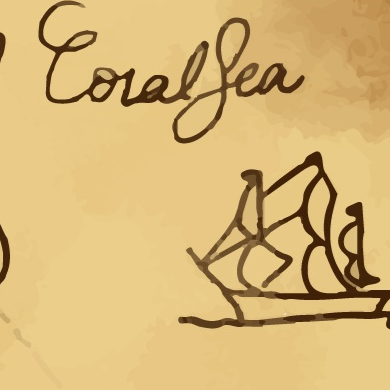 Coral Sea